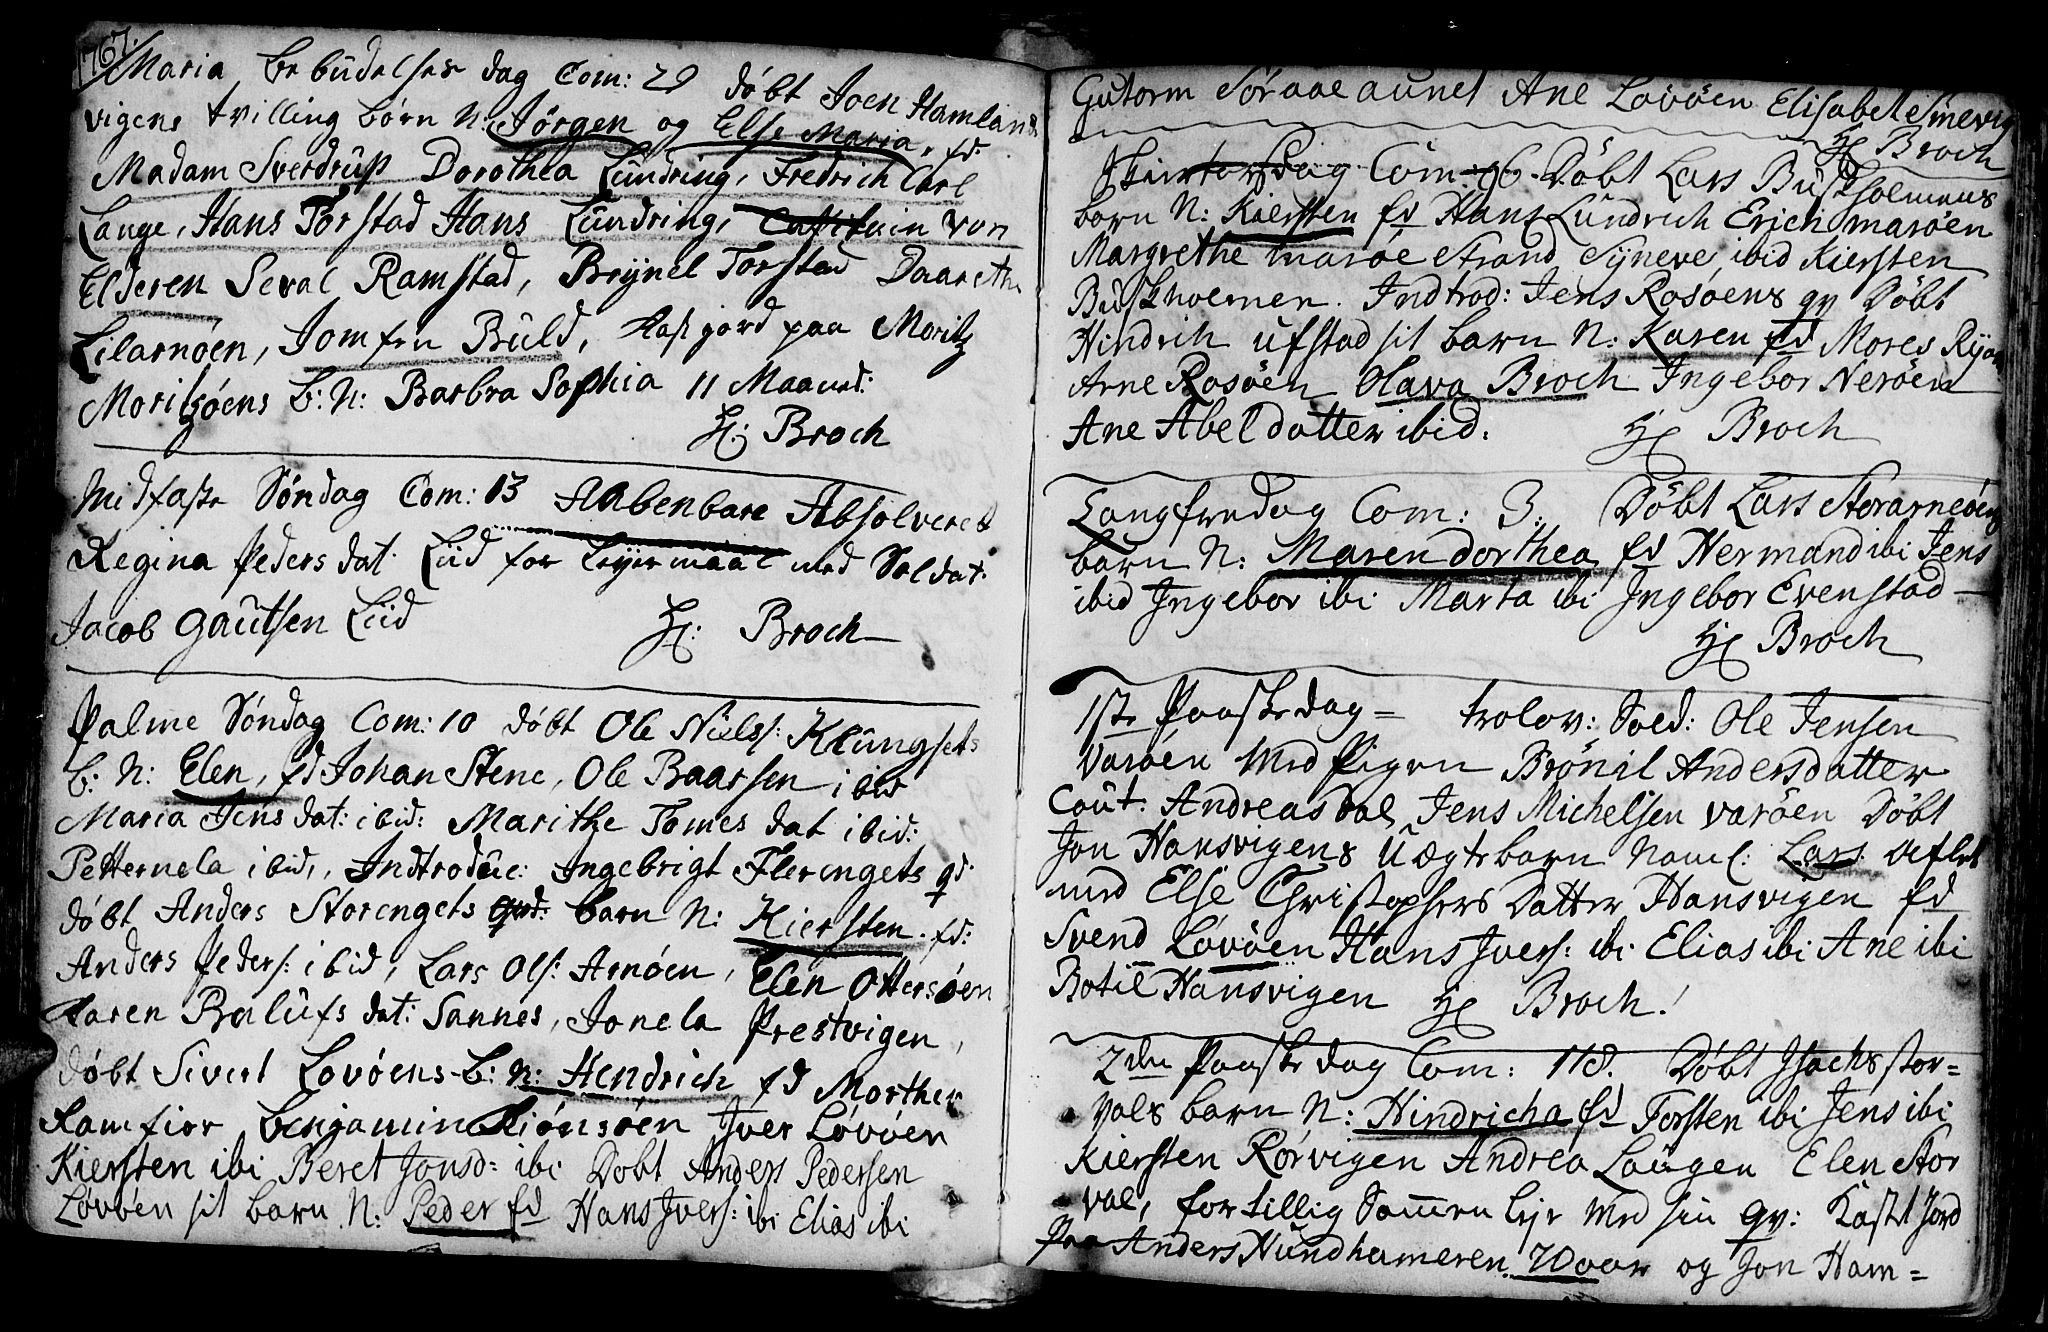 1767.
Maria bebudelses dag Com: 29 døbt Joen Hamland
vigens tvilling børn N: Jørgen og Else Maria, fd:
Madam Sverdrup Dorothea Lundring, Fredrich Carl
Lange, Hans Torstad Hans Lundring, Capitain von
Elderen Seval Ramstad, Brynel Torstad Daarethe
Lilarnöen, Jomfru Buld, Kast jord paa Moritz
Moritsöens b: N: Barbra Sophia 11 Maaned:
H: Broch
Midfaste Søndag Com: 13 Aabenbare Absolveret
Regina Peders dat: Liid for Leyermaal med Soldat
Jacob Gautsen Liid H: Broch
Palme Søndag Com: 10 døbt Ole Niels: Klungsets
b: N: Elen, fd Johan Stene, Ole Baarsen ibid
Maria Jens dat: ibid: Marithe Tomes dat ibid:
Petternela ibid,, Indtroduc: Ingebrigt Flerengets qd:
døbt Anders Storengets barn N: Kiersten. fd:
Anders Peders: ibid, Lars Ols: Arnöen, Elen Ottersöen
Karen Balufs dat: Sannes, Jonela Prestvigen,
døbt Sivert Lovöens b: N: Hendrich fd Morthen
Ramfior, Benjamin Kiönsöen Iver Lövöen
Kiersten ibi Beret Jonsd: ibi Døbt Anders Pedersen
Lövöen sit barn N: Peder fd Hans Ivers: ibi Elias ibi
Gutorm Söraaeaunet Ane Lovöen Elisabet Sinevig
H Broch
Skiertorsdag Com: 96. Döbt Lars Buskholmens
barn N: Kiersten fd Hans Lundrich Erich maröen
Margrethe maröe Strand Syneve ibid Kiersten
Buskhoemen. Indtrod: Jens Rosöens qv Döbt
Hindrich ufstad sit barn N: Karen fd Mores Ryan
Arne Rosöen Olava Broch Ingebor Neröen
Ane Abeldatter ibid. H Broch
Langfredag Com: 3. Döbt Lars Storarneöens
barn N: Maren dorthea fd Hermand ibi Jens
ibid Ingebor ibi Marta ibi Ingebor Evenstad
H Broch
1ste Paaskedag = trolov: Sold: Ole Jensen
Varöen med Pigen Brönil Andersdatter
Caut: Andreas Dal Jens Michelsen varöen Döbt
Jon Hansvigens Uægte barn Naml: Lars Aflet
med Else Christophers Datter Hansvigen fd
Svend Lovöen Hans Ivers: ibi Elias ibi Ane ibi
Botil Hansvigen H Broch!
2den Paaske dag Com: 118. Døbt Isachs stor=
vals barn N: Hindricha fd Torsten ibi Jens ibi
Kiersten Rörvigen Andrea Laugen Elen Stor
val, for tillig Sammen leye med sin qv: Kast Jord
Paa Anders Hundhameren 70 aar og Jon Ham=